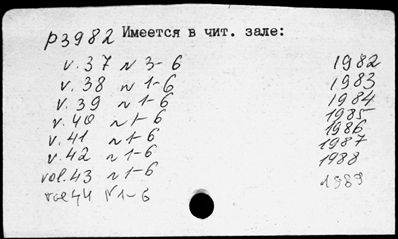 р3982 Имеется в чит. зале:
v. 37 N 3-6 1982
v. 38 N 1-6 1983
v. 39 N 1-6 1984
v. 40 N 1-6 1985
v. 41 N 1-6 1986
v. 42 N 1-6 1987
vol. 43 N 1-6 1988
vol 44 N 1-6 1989